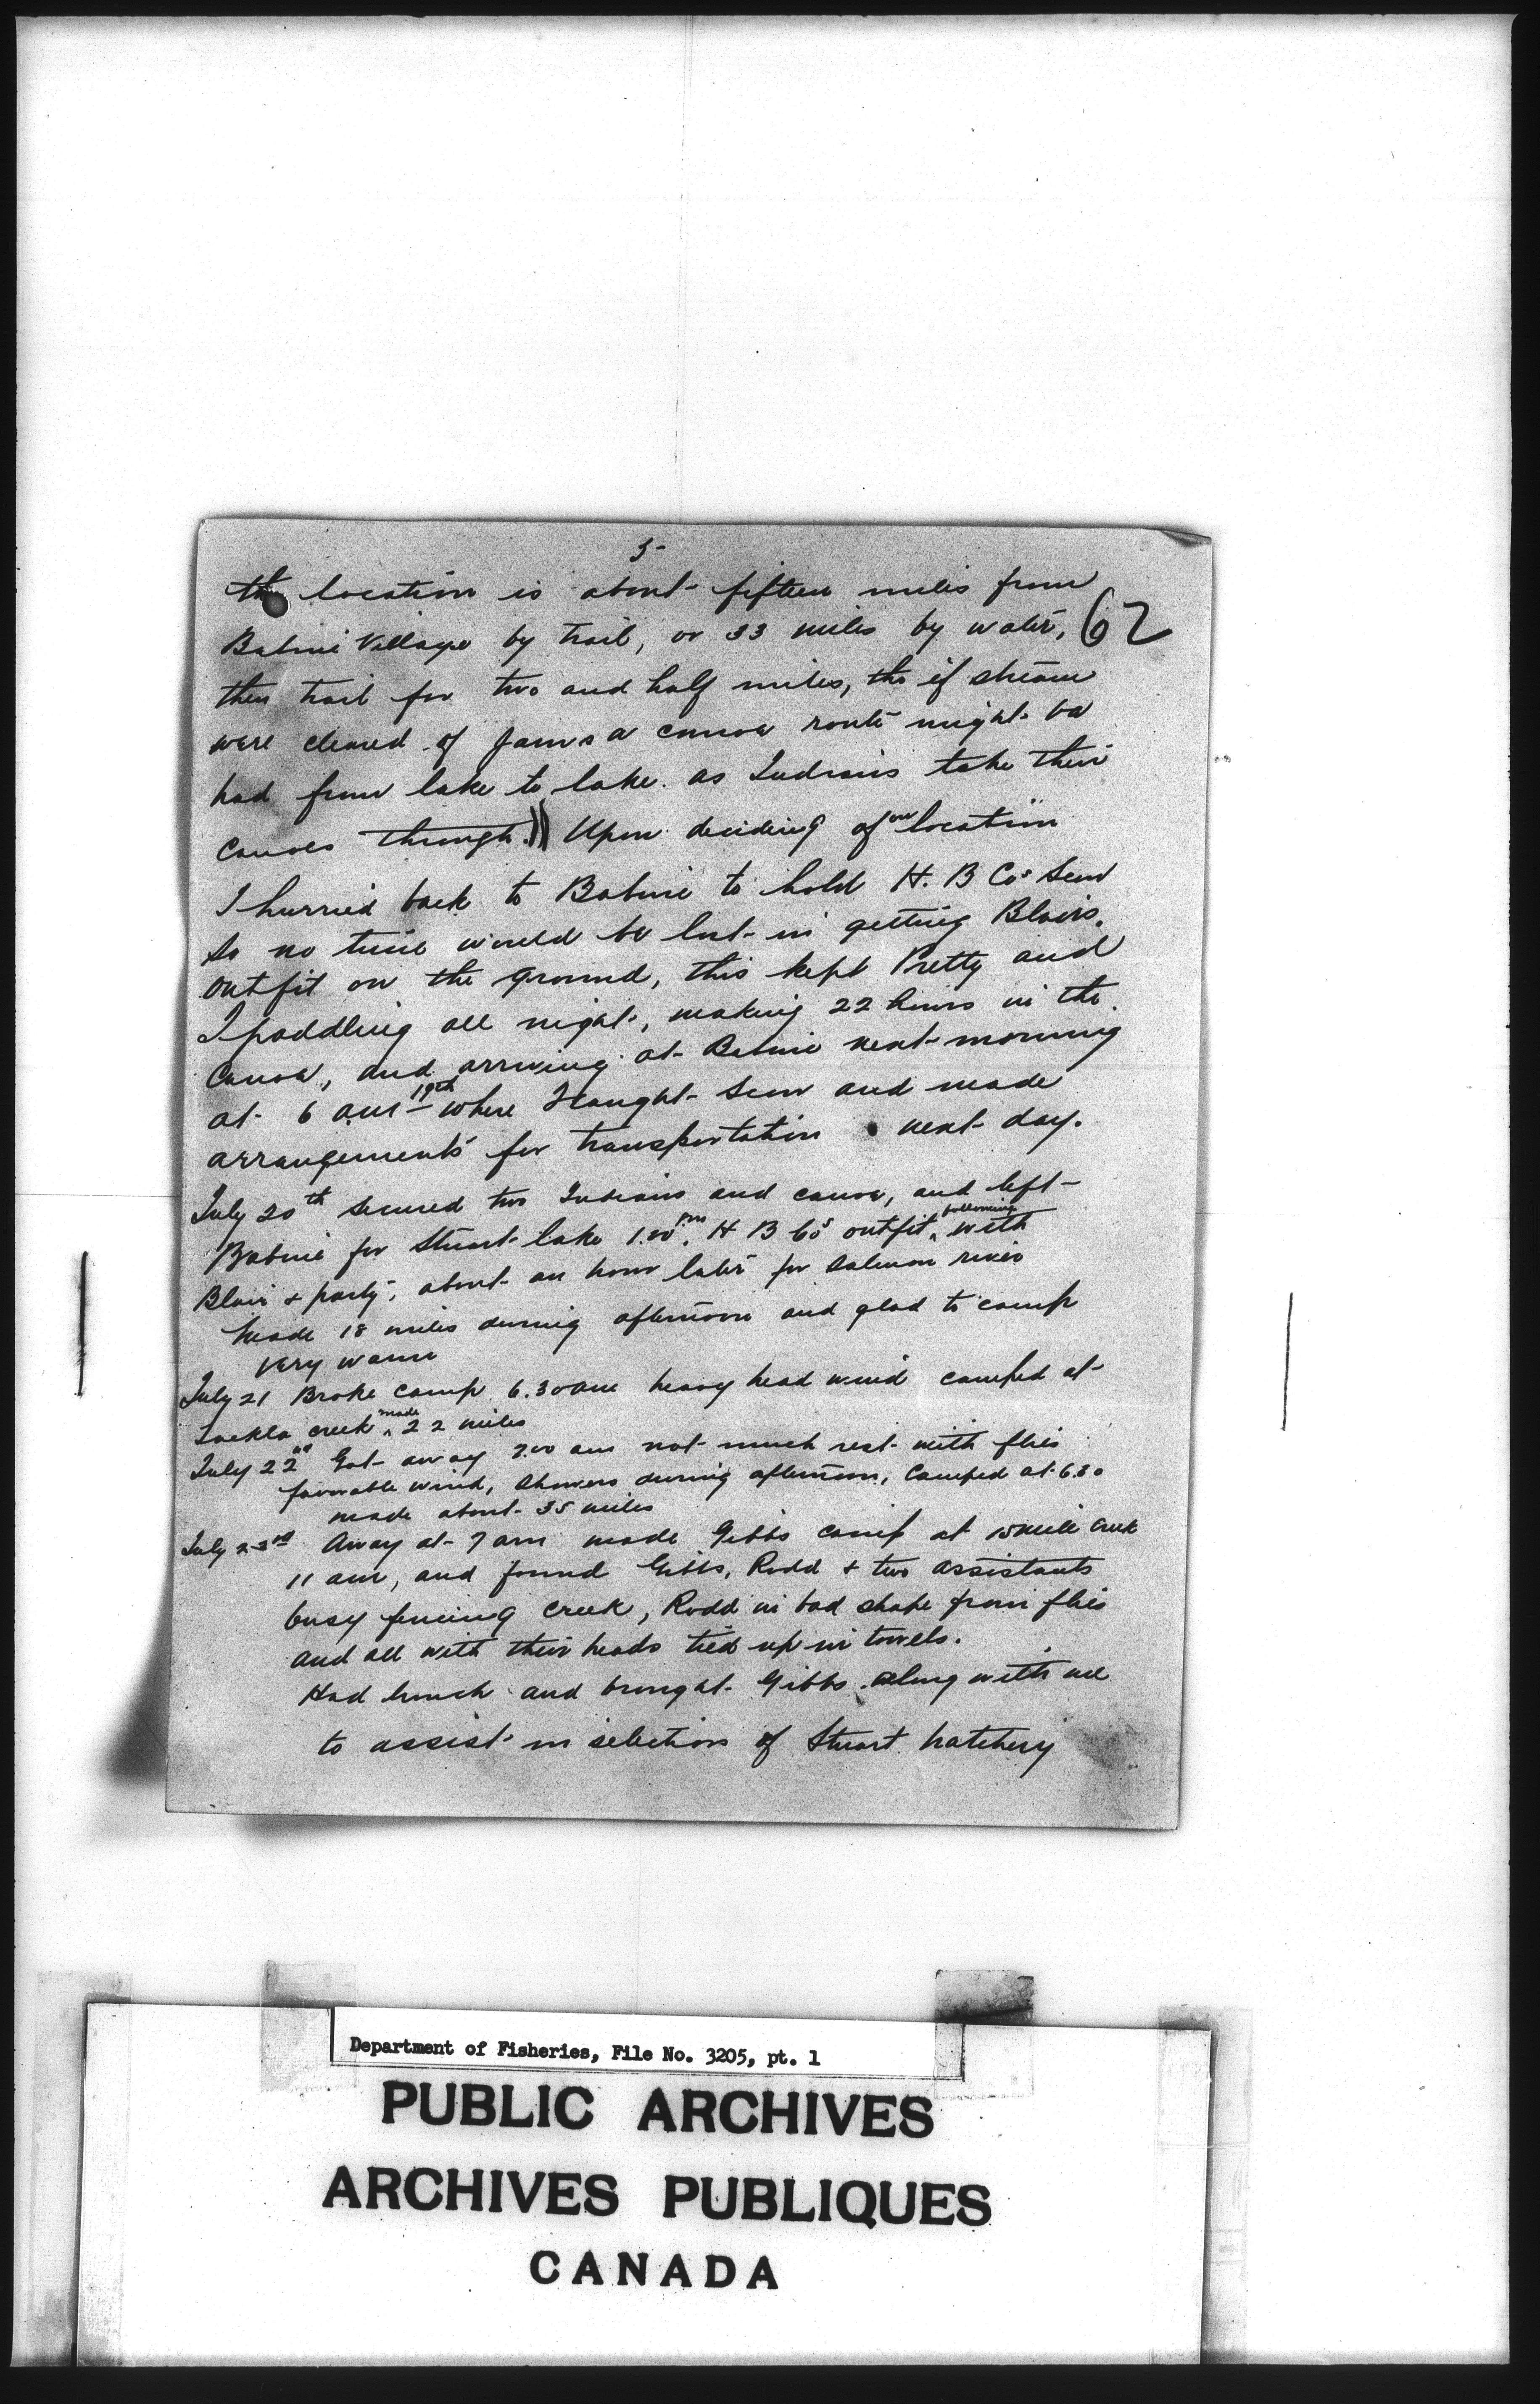 5-
the location is about fifteen miles from
Babine Village by trail, or 33 miles by water, 62
then trail for two and half miles, tho if stream
were cleared of jams a canoe route might be
had from lake to lake. as Indians take their
canoes through.)) Upon deciding of our location
I hurried back to Babine to hold H. B Co's Scow
so no time would be lost in getting Blairs.
outfit on the ground, this kept Pretty and
I paddling all night, making 22 hours in the
canoe, and arriving at Babine next morning
at 6 am 19th where I caught Scow and made
arrangements for transportation next day.
July 20th secured two Indians and canoe, and left
Babine for Stuart lake 1.00 pm. H B Co's outfit following with
Blair & party, about an hour later for Salmon river
Made 18 miles during afternoon and glad to camp
very warm
July 21 Broke camp 6.30 am heavy head wind camped at
creek made 22 miles
July 22nd Got away 7.00 am not much rest with flies
favorable wind, showers during afternoon, Camped at 6.30
made about 35 miles
July 23rd Away at 7 am made Gibbs camp at 15 mile Creek
11 am, and found Gibbs, Rodd & two assistants
busy fencing creek, Rodd in bad shape from flies
and all with their heads tied up in towels.
Had lunch and brought Gibbs along with me
to assist in selection of Stuart hatchery
Department of Fisheries, File No. 3205, pt. 1
PUBLIC ARCHIVES
ARCHIVES PUBLIQUES
CANADA